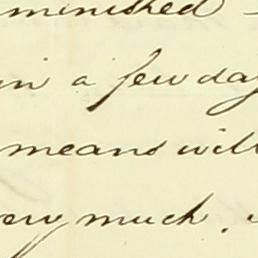 minished -
in a few day
means will
very much.